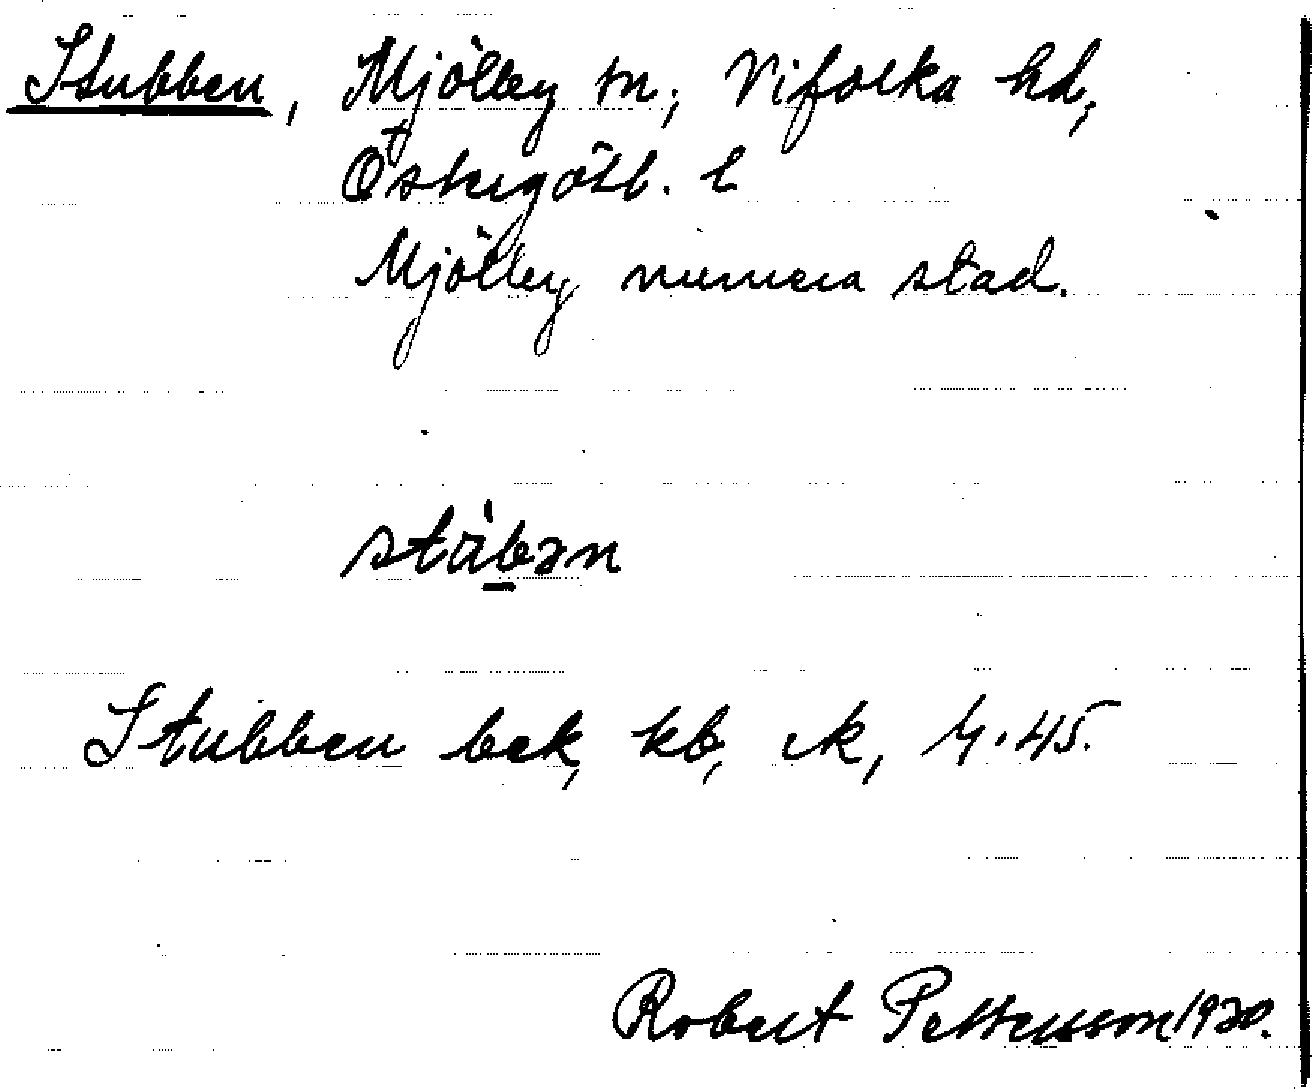 Stubben, Mjölby sn, Vifolka hd,
Östergötl. l
Mjölby numera stad.
stúbən
Stubben bek, kb, ek, 4.45.
Robert Pettersson 1920.